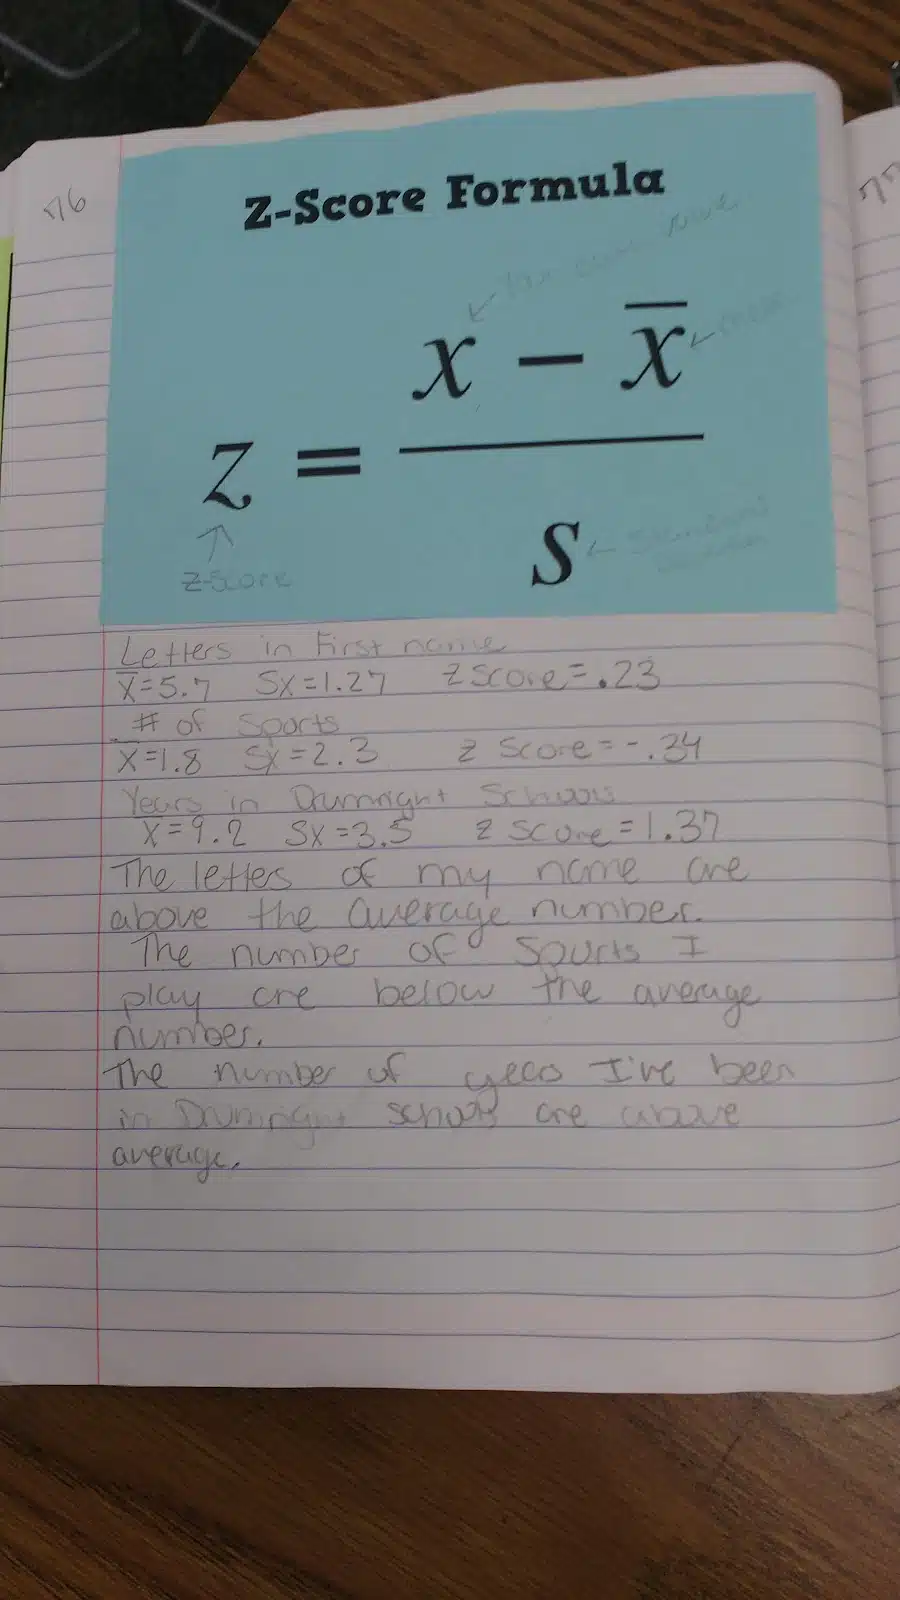 76
77
Z-Score Formula
Your own value
x − x̄
mean
z =
s
Standard deviation
z-score
Letters in First name
x̄=5.7 Sx=1.27 z score=.23
# of Sports
x̄=1.8 Sx=2.3 z score=-.34
Years in Drumright Schools
x̄=9.2 Sx=3.5 z score=1.37
The letters of my name are
above the average number.
The number of Sports I
play are below the average
number.
The number of years I've been
in Drumright schools are above
average.